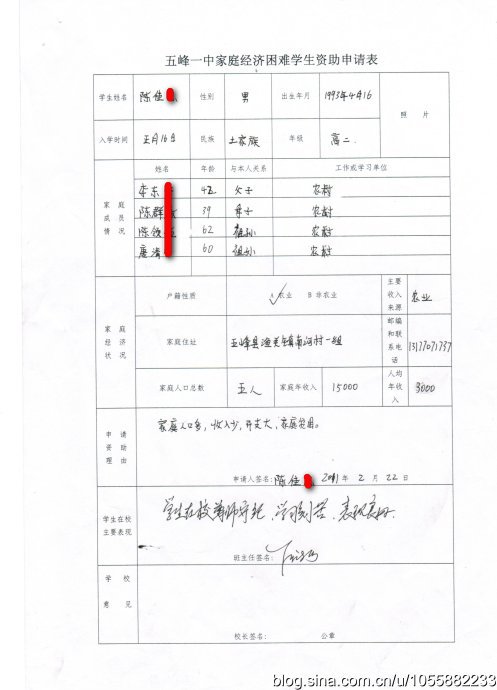 五峰一中家庭经济困难学生资助申请表
学生姓名 陈佳 性别 男 出生年月 1993年4月16 照 片
入学时间 五月16日 民族 土家族 年级 高二.
家庭成员情况 姓名 年龄 与本人关系 工作或学习单位
李东 42 父子 农村
陈群 39 母子 农村
陈 62 祖孙 农村
唐清 60 祖孙 农村
家庭经济状况 户籍性质 A 农业 B 非农业 主要收入来源 农业
家庭住址 五峰县渔关镇南河村一组 邮编和联系电话 13177071737
家庭人口总数 五人 家庭年收入 15000 人均年收入 3000
申请资助理由 家庭人口多,收入少,开支大,家庭贫困。
申请人签名: 陈佳 2011 年 2 月 22 日
学生在校主要表现 学生在校尊师守纪,学习刻苦,表现良好.
班主任签名:
学校意见
校长签名: 公章
blog.sina.com.cn/u/1055882233